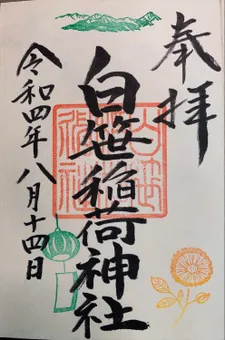 奉拝
白笹稲荷神社
令和四年八月十四日